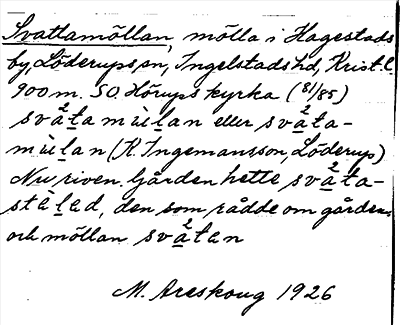 Svattamöllan, mölla i Hagestads
by, Löderups sn, Ingelstads hd, Krist. l.
900 m. SO. Hörups kyrka (81/85)
svàta mùlan eller svàta-
mùlan (K. Ingemansson, Löderup)
Nu riven. Gården hette svàta-
stàlad, den som rådde om gården
och möllan svàtan
M. Areskoug 1926